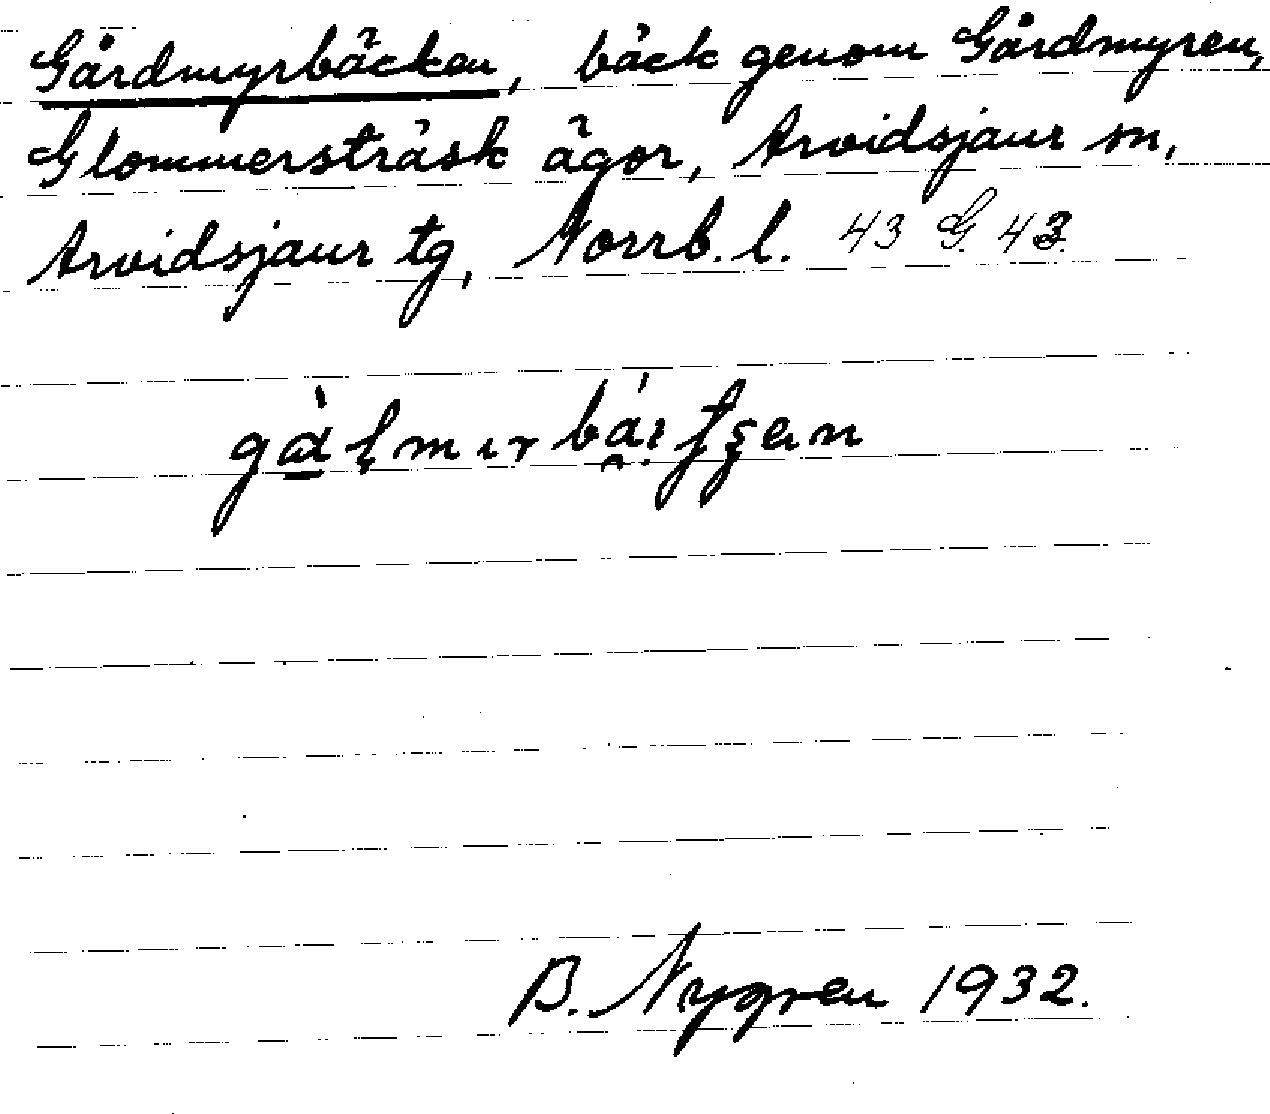 Gårdmyrbäcken, bäck genom Gårdmyren,
Glommersträsk ägor, Arvidsjaur sn,
Arvidsjaur tg, Norrb. l. 43 G. 43.
B. Nygren 1932.